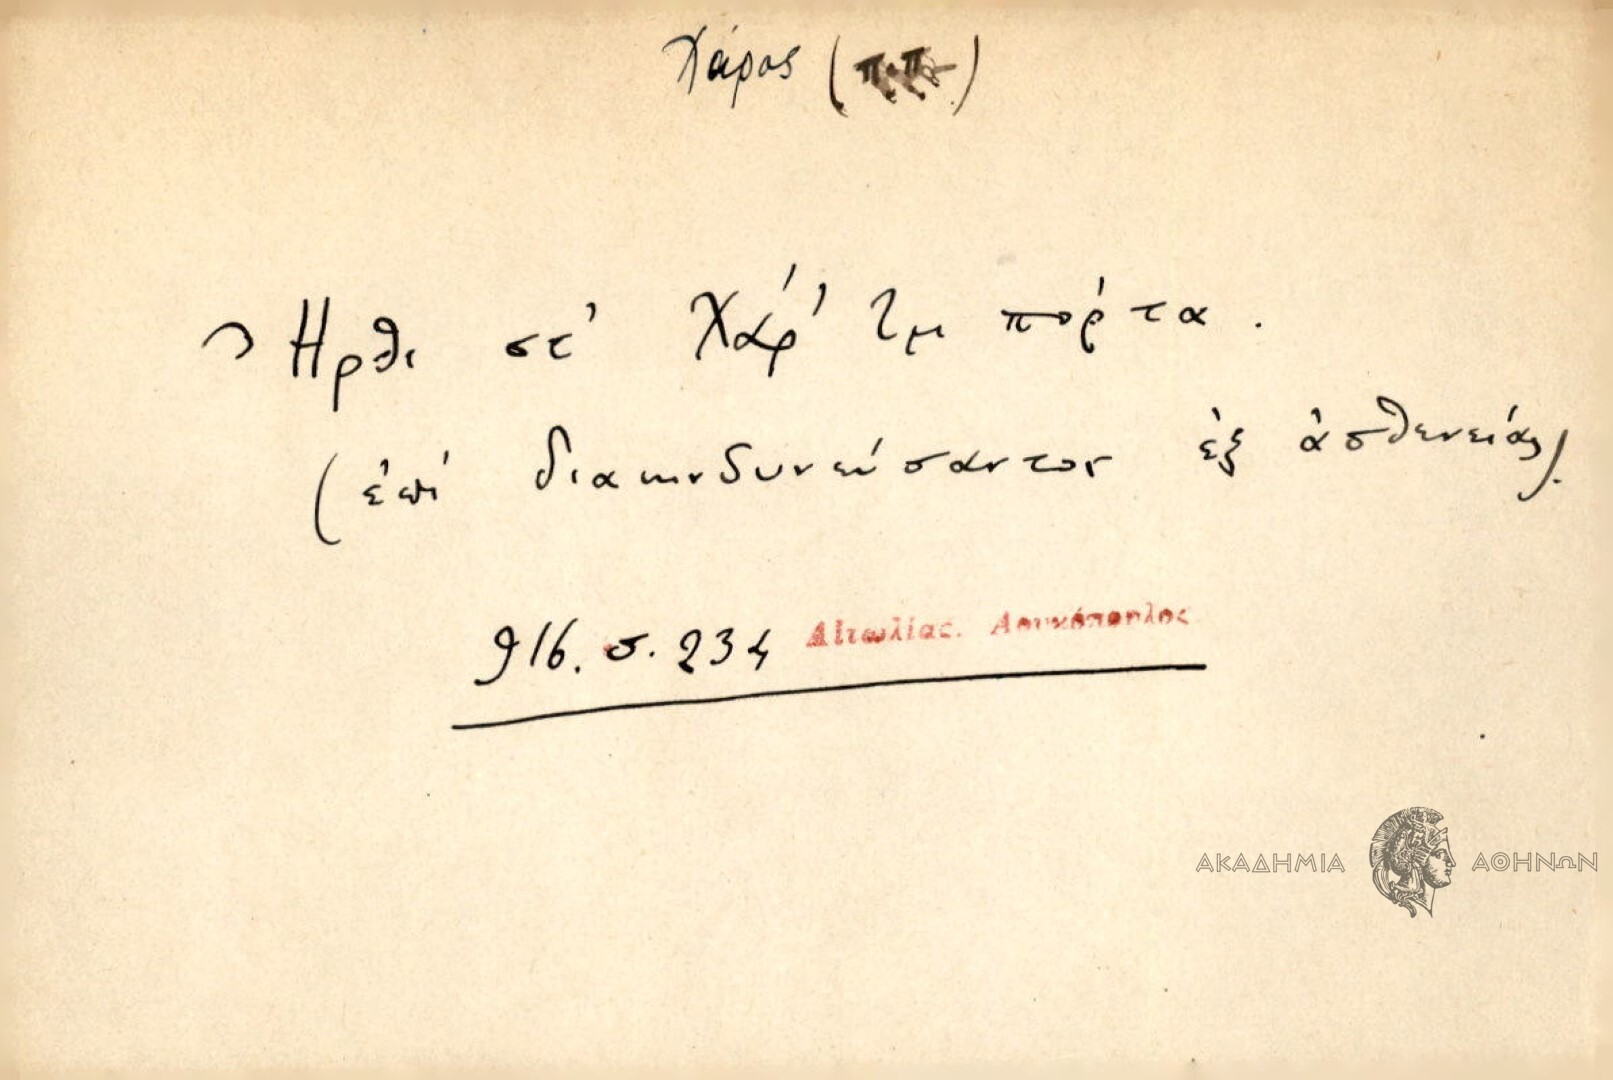 Χάρος (π.π.)
Ἦρθι στ' Χάρ' τμ πόρτα.
(ἐπί διακινδυνεύσαντος ἐξ ἀσθενείας).
916. σ. 234 Αἰτωλίας. Λουκόπουλος
ΑΚΑΔΗΜΙΑ ΑΘΗΝΩΝ